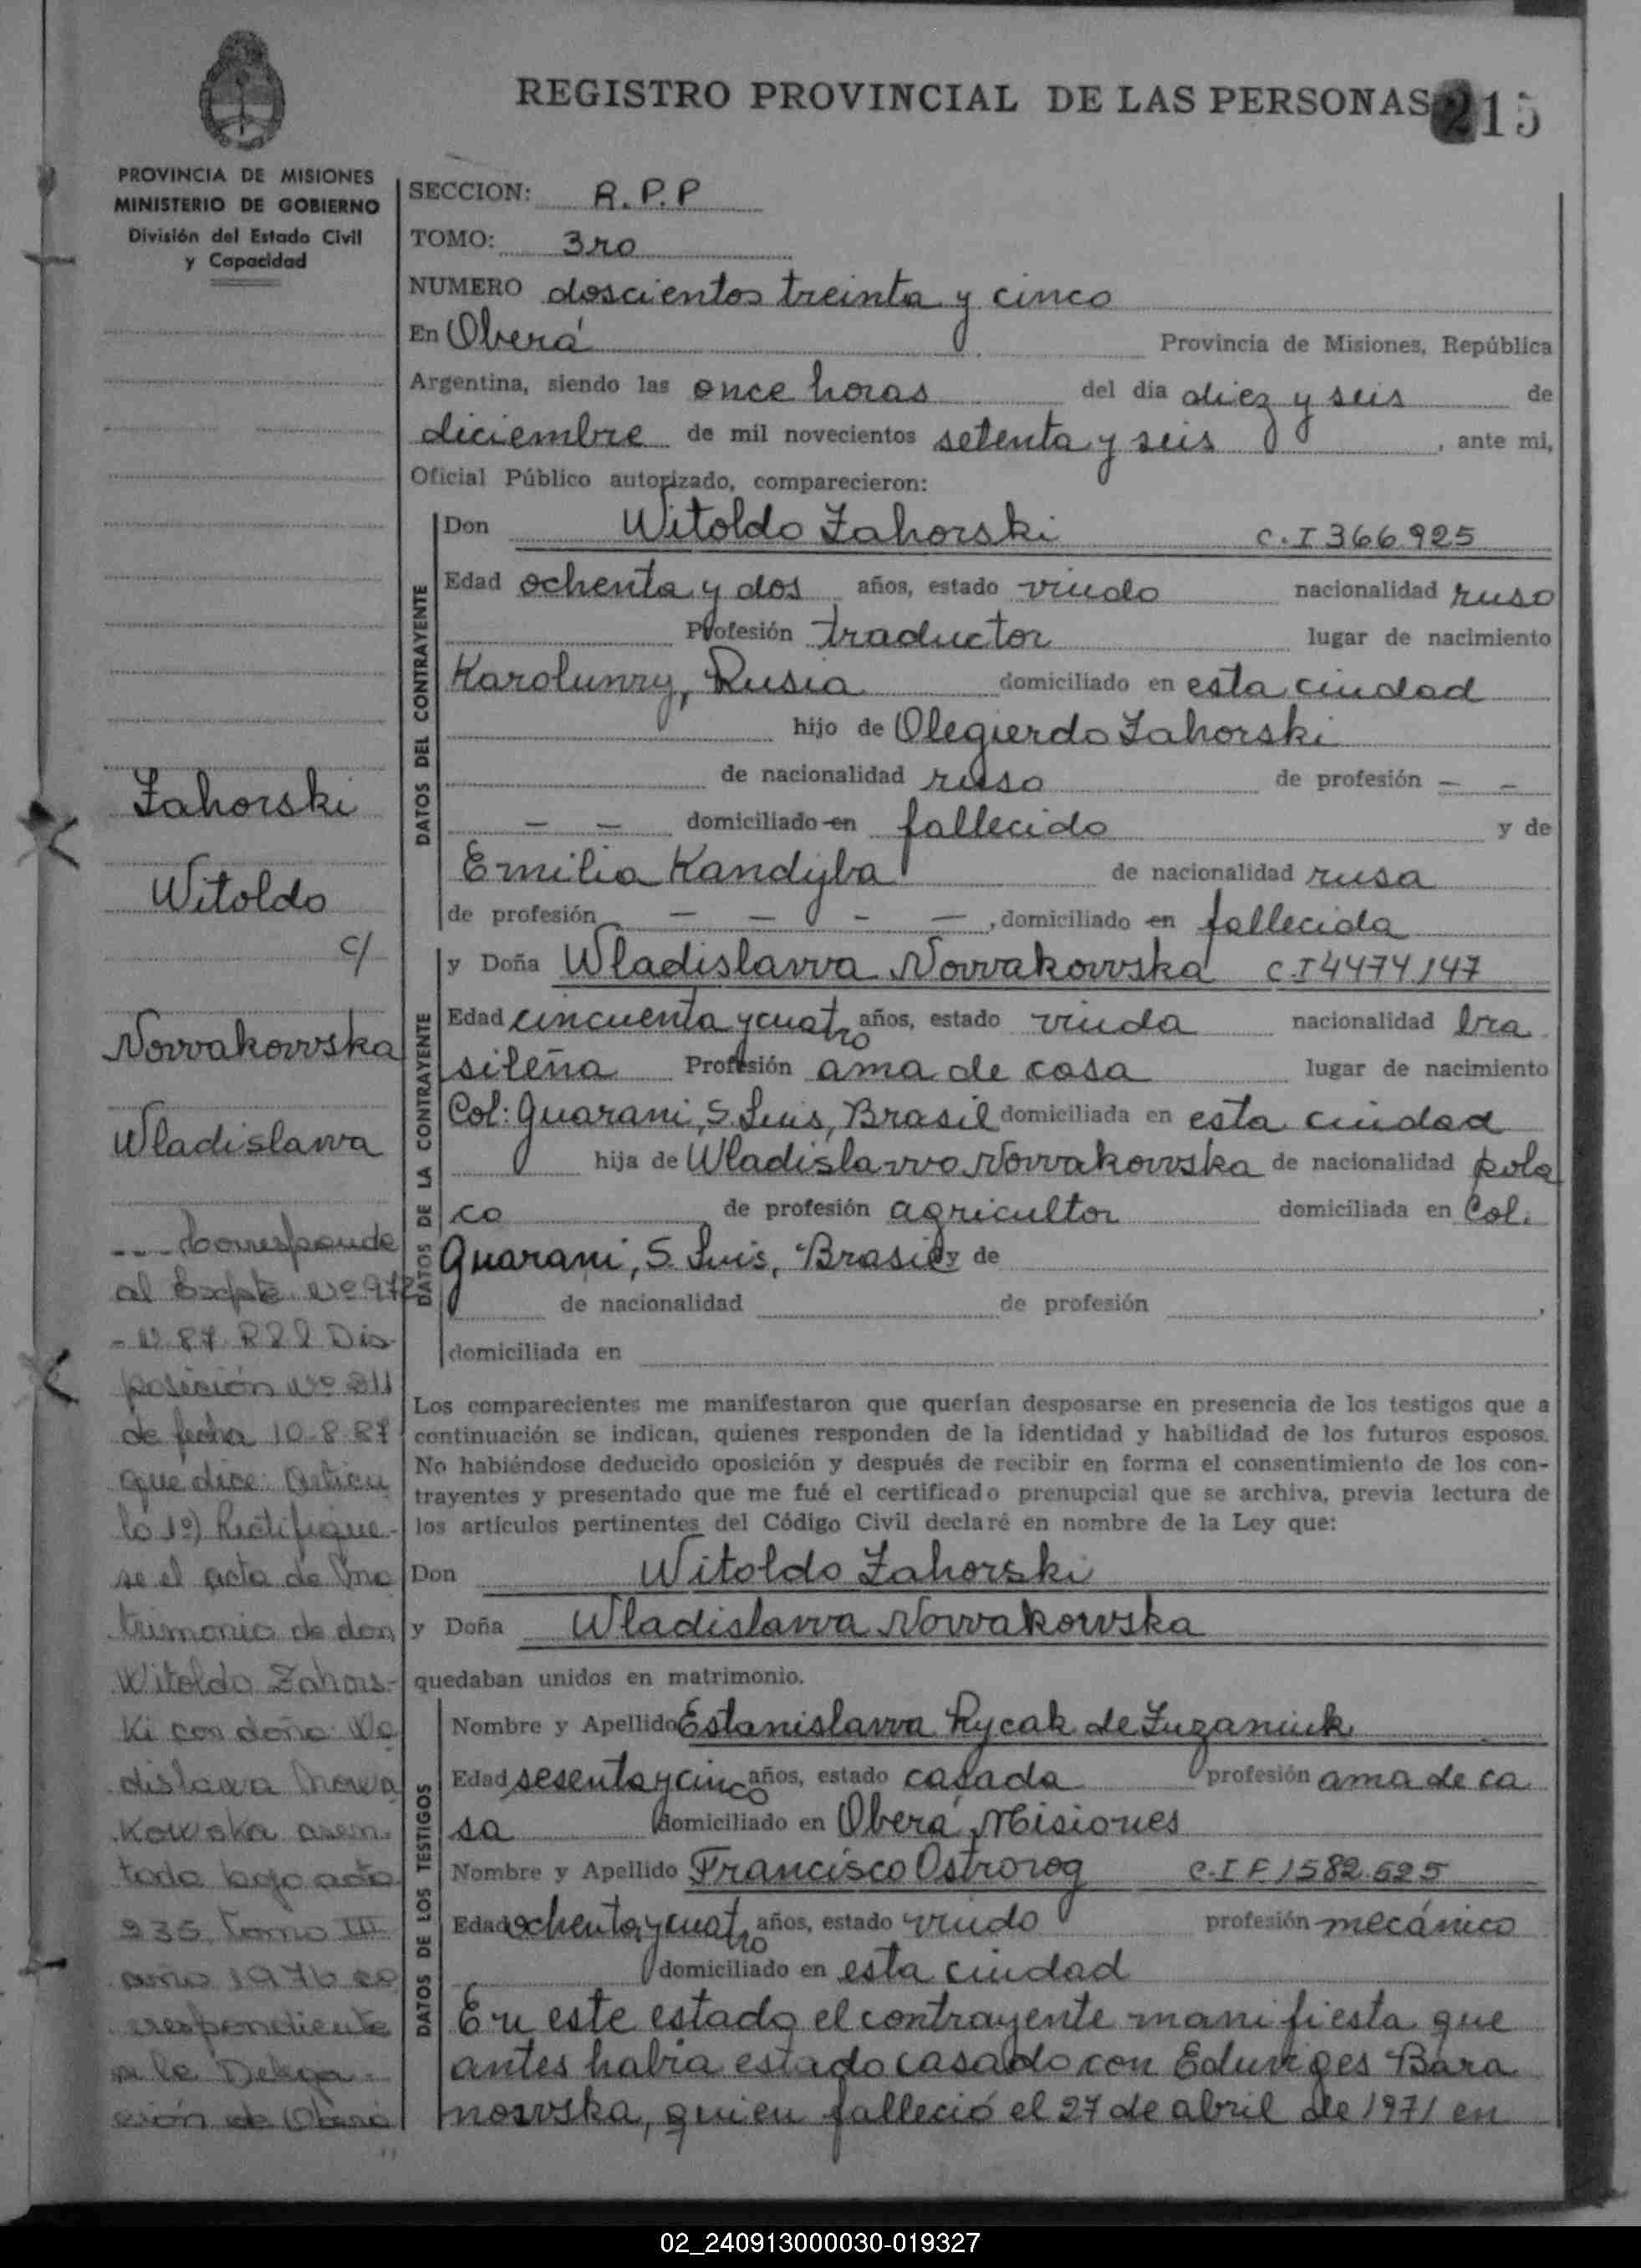 REGISTRO PROVINCIAL DE LAS PERSONAS 215
PROVINCIA DE MISIONES
MINISTERIO DE GOBIERNO
División del Estado Civil
y Capacidad
SECCION: R.P.P
TOMO: 3ro
NUMERO doscientos treinta y cinco
En Oberá Provincia de Misiones, República
Argentina, siendo las once horas del día diez y seis de
diciembre de mil novecientos setenta y seis, ante mi,
Oficial Público autorizado, comparecieron:
DATOS DEL CONTRAYENTE
Don Witoldo Zahorski C.I 366925
Edad ochenta y dos años, estado viudo nacionalidad ruso
Profesión traductor lugar de nacimiento
Karolunry, Rusia domiciliado en esta ciudad
hijo de Olegierdo Zahorski
de nacionalidad ruso de profesión - -
- - domiciliado en fallecido y de
Emilia Kandyba de nacionalidad rusa
de profesión - - - -, domiciliado en fallecida
DATOS DE LA CONTRAYENTE
y Doña Wladislawa Nowakowska C.I 4474147
Edad cincuenta y cuatro años, estado viuda nacionalidad bra
sileña Profesión ama de casa lugar de nacimiento
Col: Guarani, S. Luis, Brasil domiciliada en esta ciudad
hija de Wladislawo Nowakowska de nacionalidad pola
co de profesión agricultor domiciliada en Col.
Guarani, S. Luis, Brasil y de
de nacionalidad de profesión ,
domiciliada en
Los comparecientes me manifestaron que querían desposarse en presencia de los testigos que a
continuación se indican, quienes responden de la identidad y habilidad de los futuros esposos.
No habiéndose deducido oposición y después de recibir en forma el consentimiento de los con-
trayentes y presentado que me fué el certificado prenupcial que se archiva, previa lectura de
los artículos pertinentes del Código Civil declaré en nombre de la Ley que:
Don Witoldo Zahorski
y Doña Wladislawa Nowakowska
quedaban unidos en matrimonio.
DATOS DE LOS TESTIGOS
Nombre y Apellido Estanislawa Rycak de Luzaniuk
Edad sesenta y cinco años, estado casada profesión ama de ca
sa domiciliado en Oberá, Misiones
Nombre y Apellido Francisco Ostrorog C.I F 1582.525
Edad ochenta y cuatro años, estado viudo profesión mecánico
domiciliado en esta ciudad
En este estado el contrayente manifiesta que
antes habia estado casado con Eduviges Bara
nowska, quien falleció el 27 de abril de 1971 en
Zahorski
Witoldo
c/
Nowakowska
Wladislawa
Corresponde
al Expte Nº 972
posición Nº 811
de fecha 10-8-87
que dice: Articu
lo 1º) Rectifique-
se el acta de ma
trimonio de don
Witoldo Zahors-
ki con doña Wla
dislawa Nowa
kowska asen
tada bajo acta
235, Tomo III
año 1976 co
rrespondiente
a la Delega-
ción de Oberá
"
02_240913000030-019327